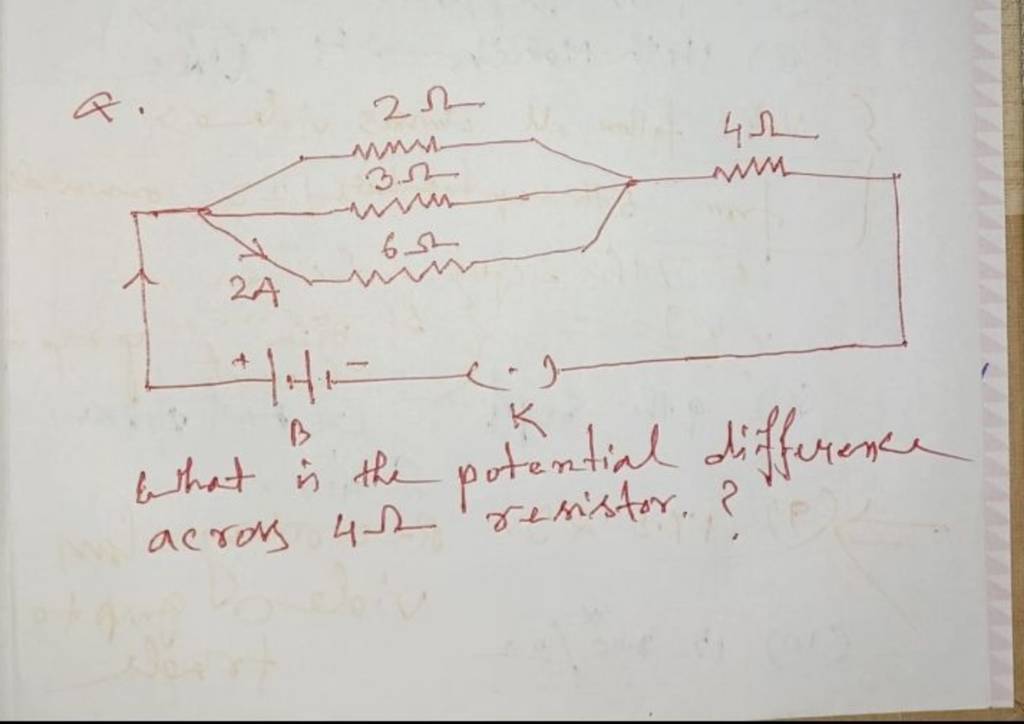 Q.
2Ω
4Ω
3Ω
6Ω
2A
+ -
B
K
What is the potential difference
across 4Ω resistor.?